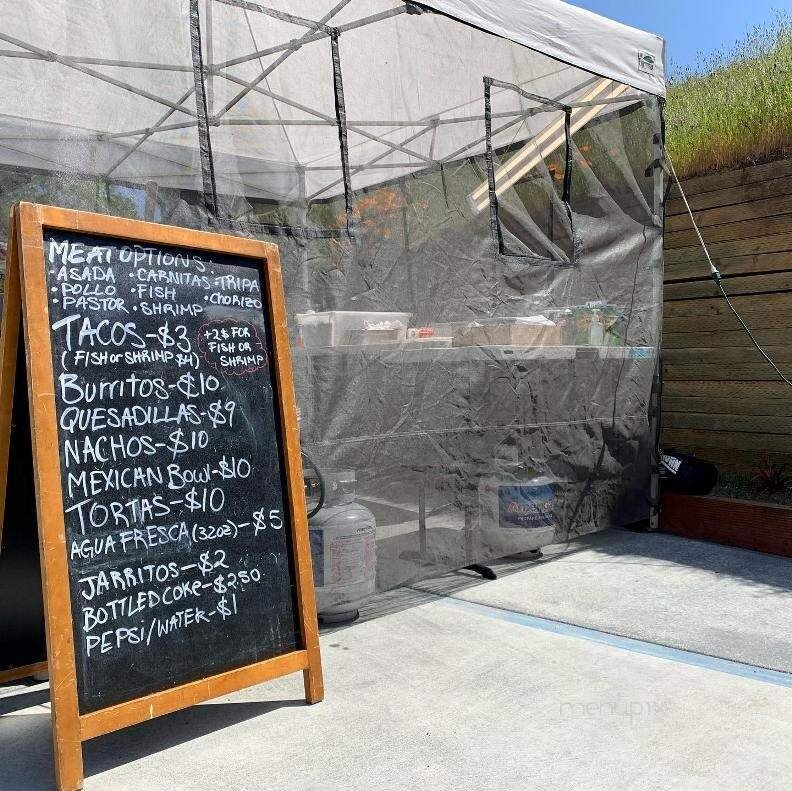 MEAT OPTIONS:
·ASADA ·CARNITAS ·TRIPA
·POLLO ·FISH ·CHORIZO
·PASTOR ·SHRIMP
TACOS-$3
(FISH or SHRIMP $4)
+2$ FOR
FISH OR
SHRIMP
Burritos-$10
QUESADILLAS-$9
NACHOS-$10
MEXICAN BOWL-$10
TORTAS-$10
AGUA FRESCA (32oz)-$5
JARRITOS-$2
BOTTLED COKE-$2.50
PEPSI/WATER-$1
menupix